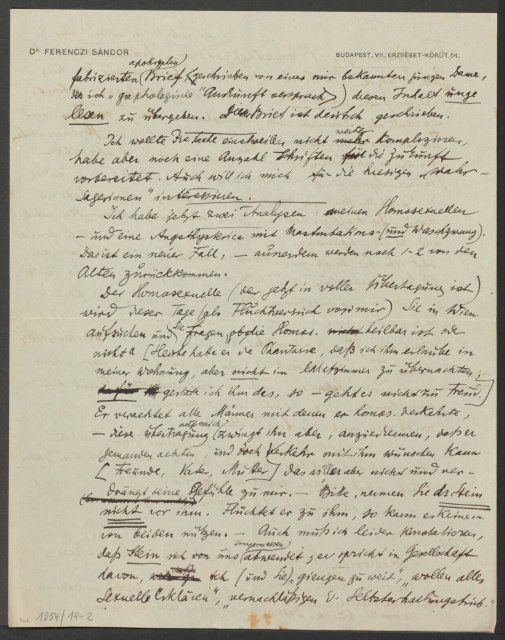 Dr. FERENCZI SÁNDOR
BUDAPEST, VII. ERZSÉBET-KÖRÚT 54.
apokryphen
fabrizierten Brief (geschrieben von einer mir bekannten jungen Dame,
ich „graphologische" Auskunft versprach) diesen Inhalt unge
lesen zu übergeben. Der Brief ist deutlich geschrieben.
Ich wollte die Leute einstweilen nicht weiter komplizieren,
habe aber noch eine Anzahl Schriften für die Zukunft
vorbereitet. Auch will ich mich für die hiesigen „Wahr-
sagerinnen" interessieren.
Ich habe jetzt zwei Analysen: einen Homosexuellen
– und eine Angsthysterica mit (und Waschzwang).
Das ist ein neuer Fall, – ausserdem werden noch 1-2 von den
Alten zurückkommen.
Der Homosexuelle (der jetzt in voller Übertragung ist)
wird dieser Tage (als Flucht vor mir) Sie in Wien
aufsuchen und Sie fragen, ob die Homos. heilbar ist oder
nicht. [Heute habe er die Phantasie, daß ich ihm erlaube in
meiner Wohnung, aber nicht in zu übernachten;
gestatte ich ihm das, so – geht es nicht zu Freud.]
Er verachtet alle Männer mit denen er homos. verkehrte,
– diese Übertragung auf mich zwingt ihn aber, anzuerkennen, daß er
jemanden achten, und doch Verkehr mit ihm wünschen kann
[Freunde, Vater, Mutter] das will er aber nicht und ver-
drängt seine Gefühle zu mir. – Bitte, nehmen Sie
nicht vor ihm. Flüchtet er zu ihm, so kann es keinem
von beiden nützen. – Auch muß ich leider konstatieren,
daß Stein sich von uns einigermassen abwendet; er spricht in Gesellschaft
davon, daß ich (und Sie) „giengen zu weit", „wollen alles
sexuelle erklären", „vernachlässigen d. Selbsterhaltungstrieb."
1054/14-2